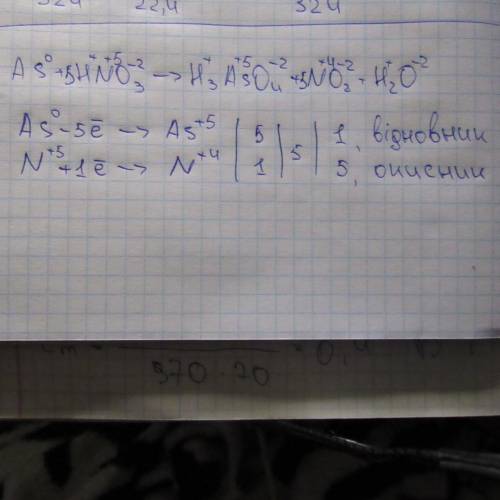 324 22,4 324
As⁰ + 5H⁺N⁺⁵O₃⁻² → H₃⁺As⁺⁵O₄⁻² + 5N⁺⁴O₂⁻² + H₂⁺O⁻²
As⁰ - 5ē → As⁺⁵ | 5 | 5 | 1, відновник
N⁺⁵ + 1ē → N⁺⁴ | 1 | | 5, окисник
570 · 20